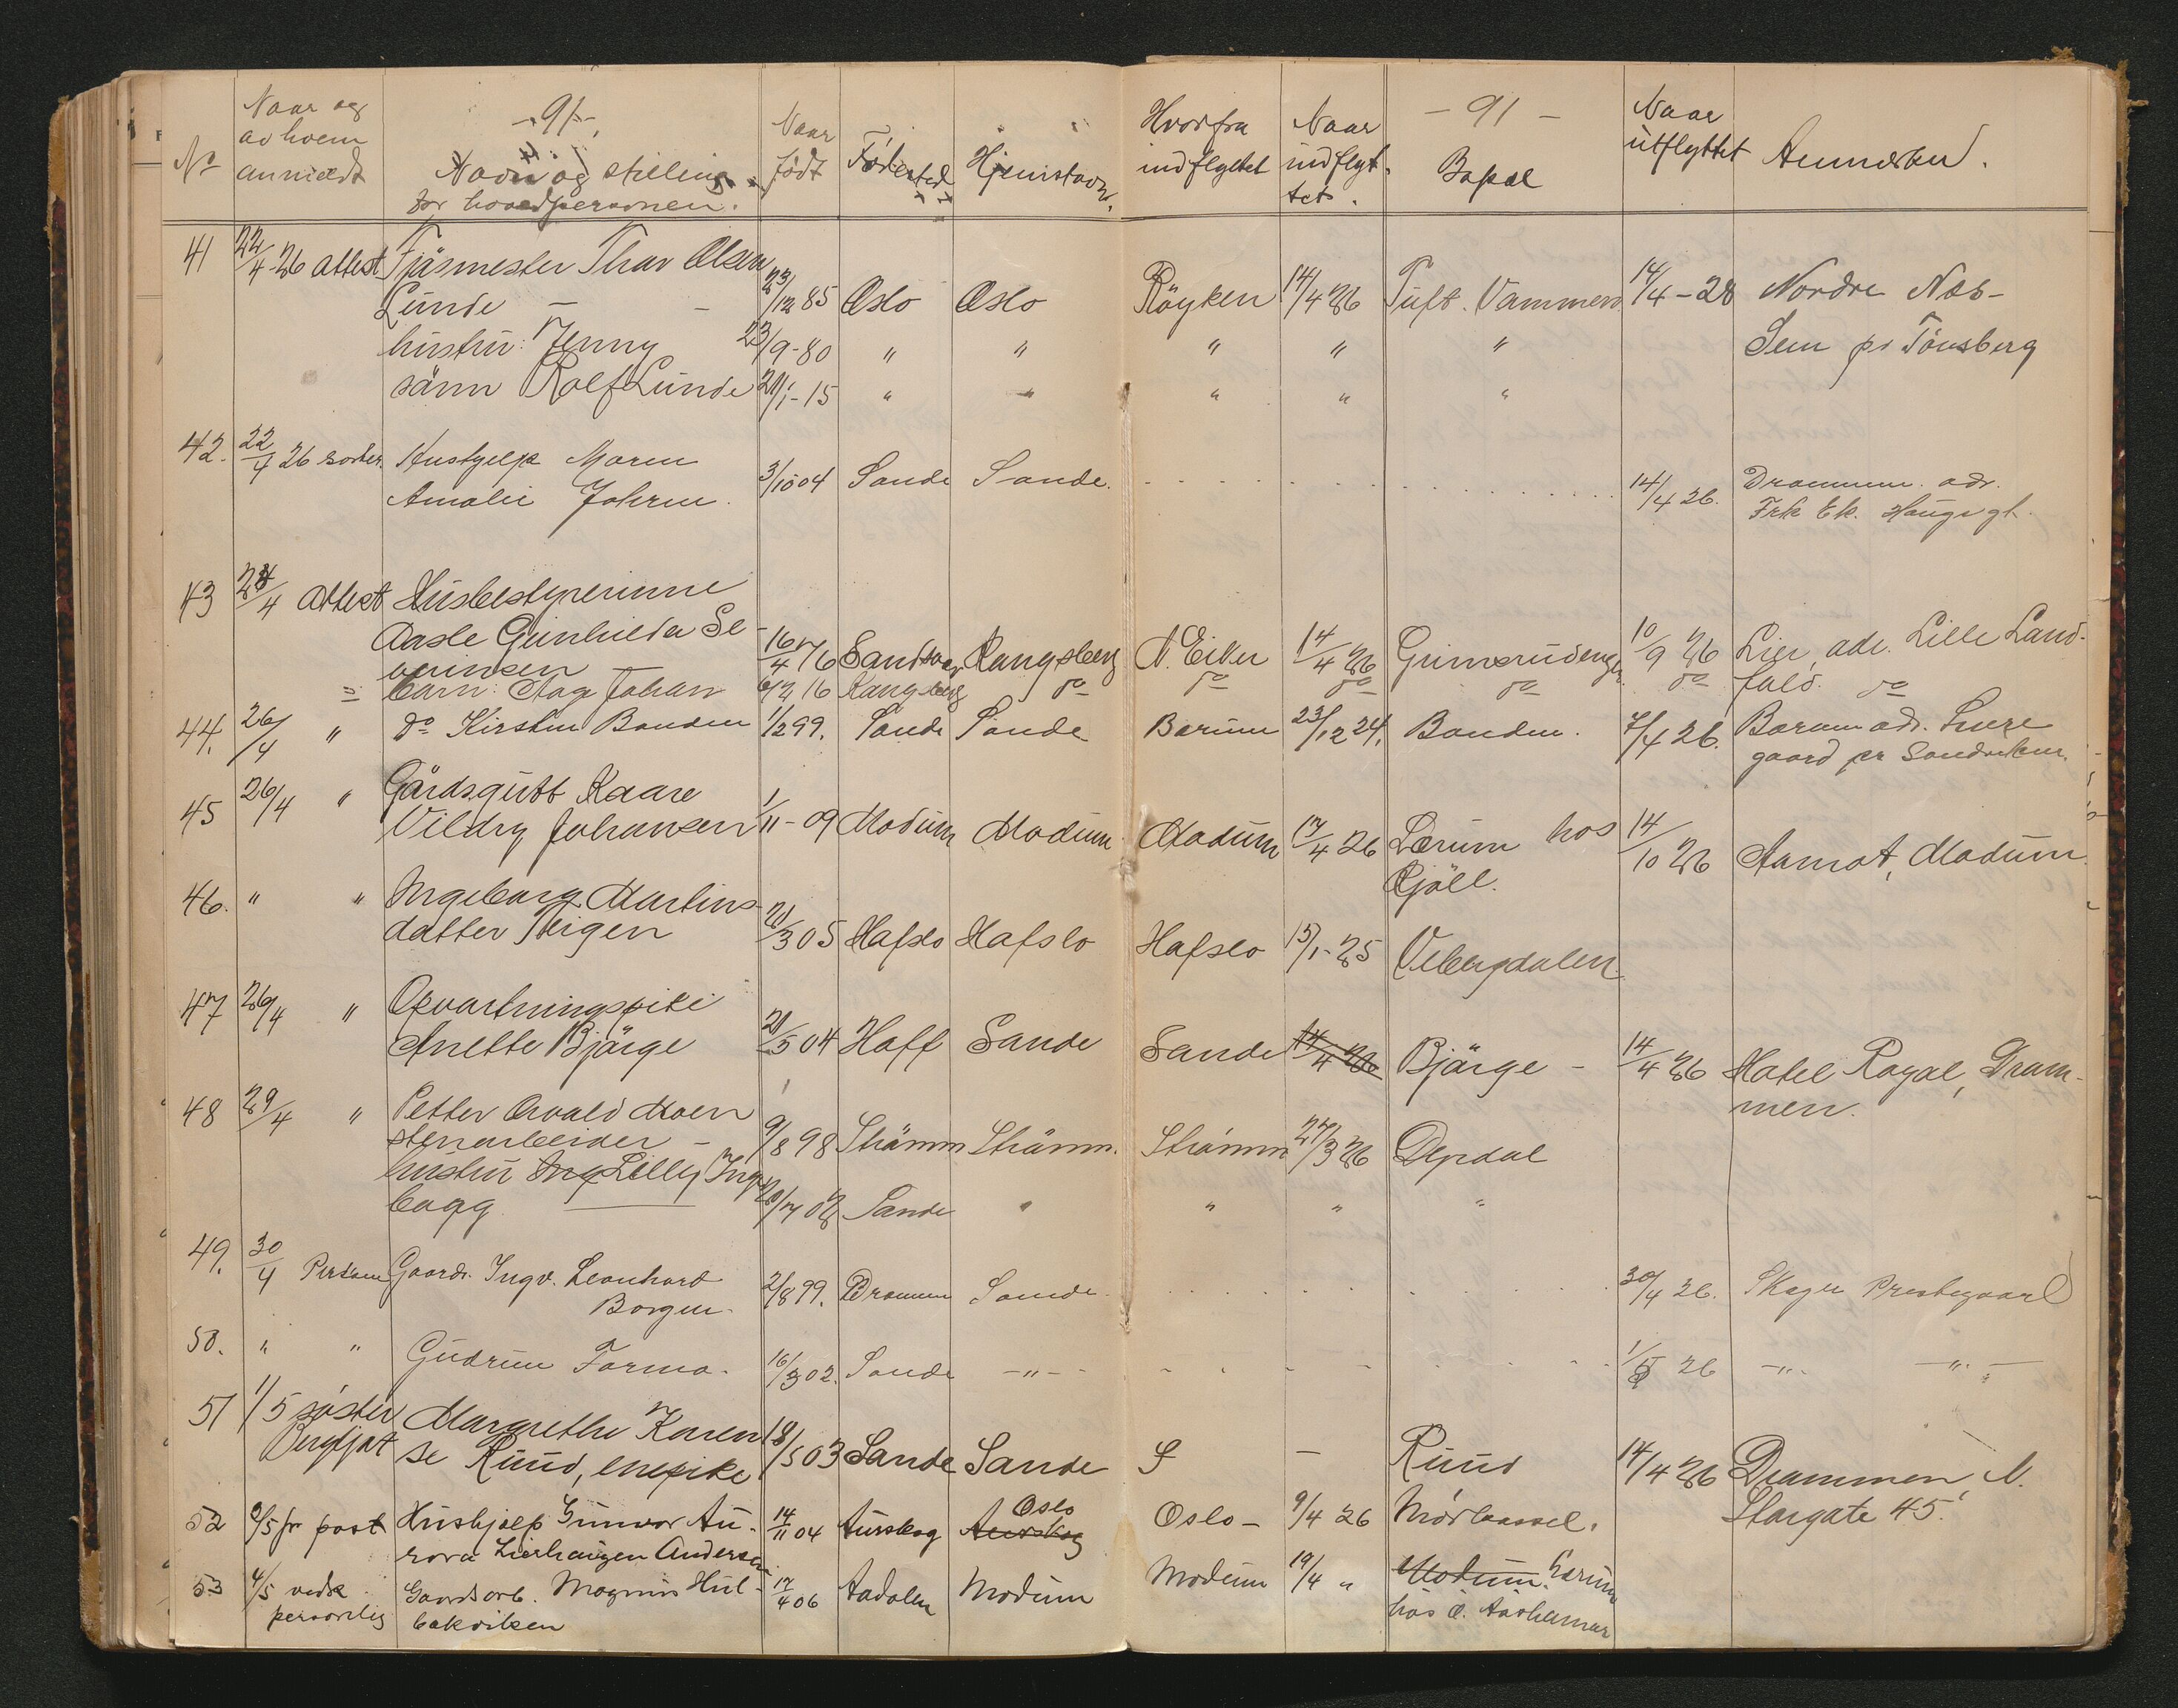 -91-
Nº
Naar og
av hvem
anmeldt
Navn og stilling
for hovedpersonen.
Naar
født
Fødested
Hjemstavn.
Hvorfra
indflyttet
Naar
indflyt-
tet.
- 91 -
Bopæl
Naar
utflyttet
Anmerkn.
41 22/4-26 attest Fjösmester Thor Olsen
Lunde — - 23/12 85 Oslo Oslo Röyken 14/4 26 Tuft. Vammen 14/4-28 Nordre Nes-
hustru: Jenny 23/9-80 " " " " " Sem pr Tönsberg
sönn Rolf Lunde 21/1-15 " " " " "
42. 22/4 26 Hushjelp Maren
Amalie 3/10 04 Sande Sande. 14/4 26. Drammen. adr.
Frk Ek. Haugsgt.
43 /4 attest Husbestyrerinne
Aasle Gunhilda Se-
verinsen 16/4 76 Sandsvær Kongsberg N. Eiker 14/4 26 Grimsrudenga 10/9 26 Lier, adr. Lille Land-
barn: Aag Johan 16 Kongsberg do do do do do fald. do
44. 26/4 " do Kirsten Bonden 1/2 99. Sande Sande Bærum 23/12 24. Bonden. 7/4 26. Bærum adr.
gaard pr Sandviken.
45 26/4 " Gårdsgutt Kaare
Vildry Johansen 1/11-09 Modum Modum Modum 17/4 26 Lærum hos 14/10 26 Aamot, Modum.
Kjöll.
46. " " Ingeborg Martins-
datter Teigen 21/3 05 Hafslo Hafslo Hafslo 15/1-25 Vebergdalen
47 26/4 " Opvartningspike
Anette Bjørge 21/5 04 Hoff Sande Sande 14/4 26 Bjørge - 14/4 26 Hotel Royal, Dram-
men.
48 29/4 " Petter Osvald Moen
stenarbeider - 9/8 98 Strömm Strömm. Strömm 27/3 26 Depdal
hustru Ing Lilly Inge-
borg 20/7 02 Sande " " " "
49. 30/4 Person Gaardr. Ingv. Leonhard
Borgen. 2/8 99. Drammen Sande. 30/4 26. Skoger Prestegaard
50. " " Gudrun Formo. 16/3 02. Sande -"- 1/5 26 -"- -"-
51 1/5 søster
Bergljot Margrethe Karen
se Ruud, enepike 18/5 03 Sande Sande S — Ruud 14/4 26 Drammen, N.
Storgate 45.
52 2/5 pr post Hushjelp Gunvor Au-
rora Lierhaugen Andersen 14/11 04 Aurskog Aurskog Oslo Oslo - 9/4 26 Mörlassel.
53 4/5 vedk
personlig Gaardsarb. Magnus Hul-
bakviken 17/4 06 Aadalen Modum Modum 19/4 " Modum. Lærum
hos O. Aashamar